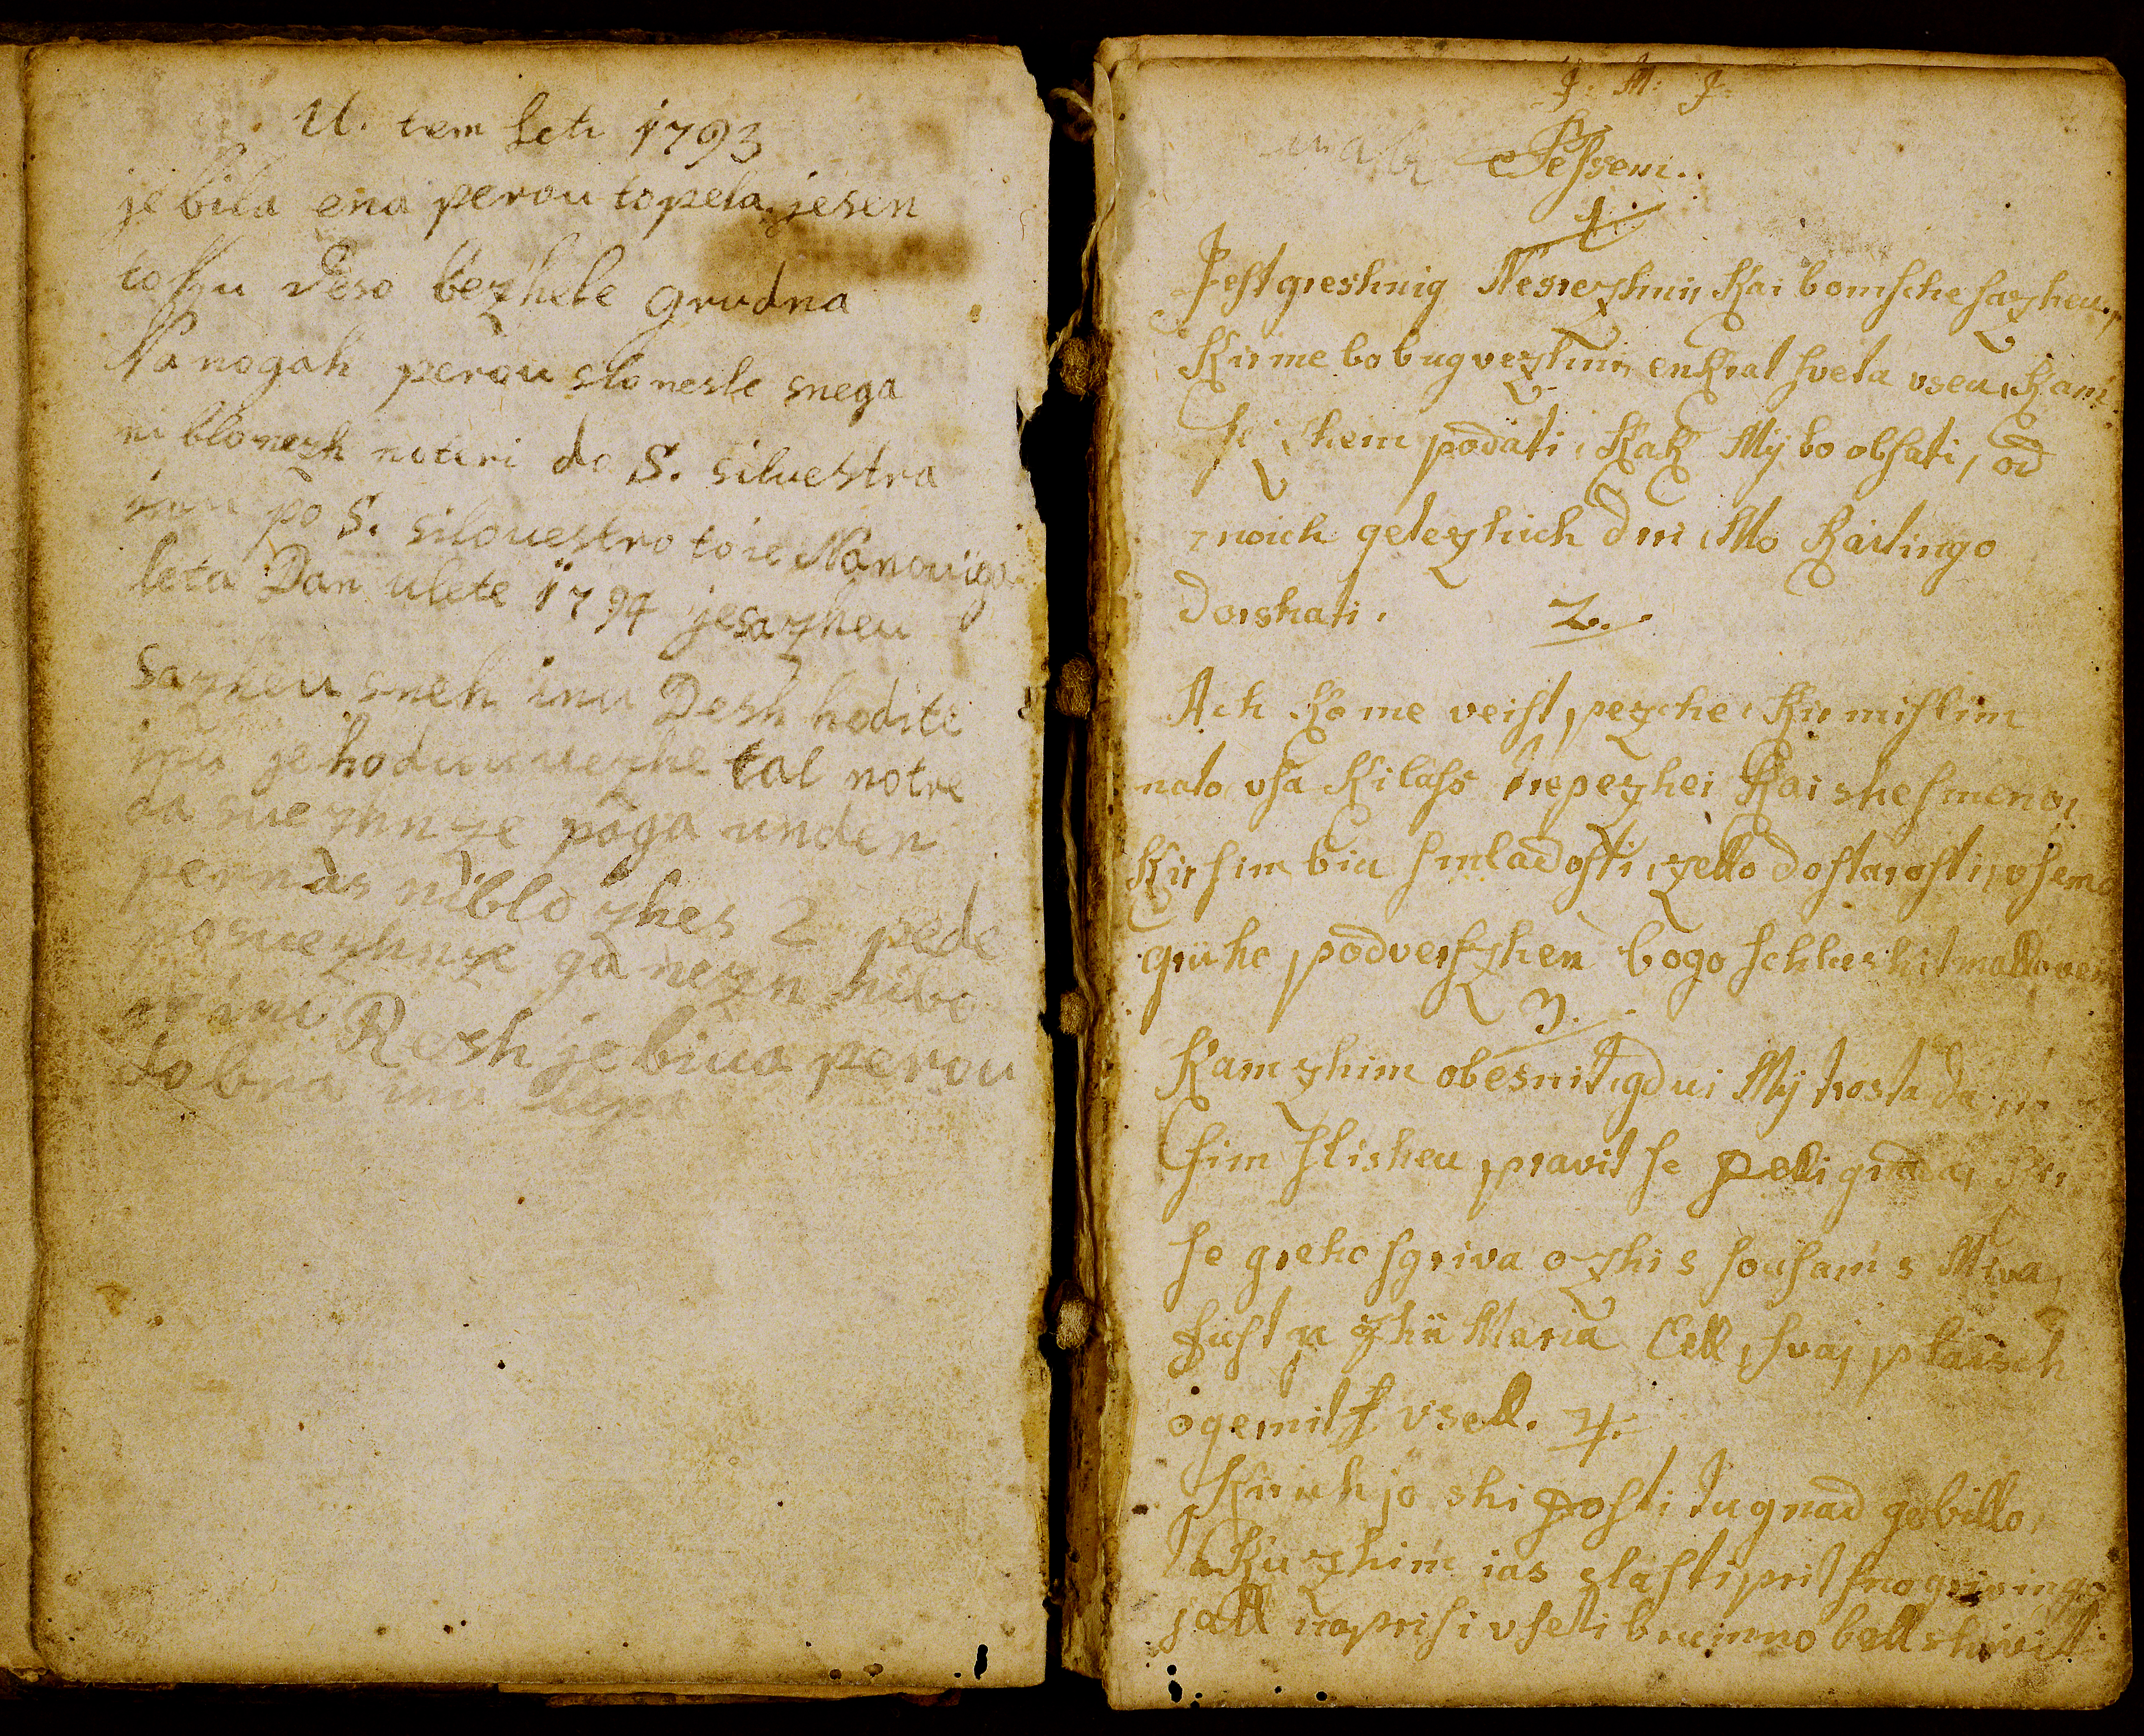 U. tem leti 1793
je bila ena perou topela jesen
to so bezhele grudna
Na nogah perou slo nesle snega
ni blo nezh noteri do S. siluestra
inu po S. silouestro to ie Na nouiga
leta Dan ulete 1794 jesazheu
sazheu sneh inu Desh hodite
inu je hodu uuezhe tal notre
da suezhnze poga unden
per nas niblo zhes 2 pede
posuezhnze ga nezn nibo
inu Resh je biua perou
dobra inu lepa
J: M: J:
Pessem.
1.
Jest greshnig Nesrezhnii Kai bom sche sazheu,
Kir me bo bug vezhnii enkrat sveta vseu, Kam
se zhem podati, Kak My bo obstati, od
moich getezhich dni, Mo Raitingo
Dorshati. 2.
Ach Ko me veist pezche, Kir mislim
nato vsa Ki lass trepezhei Kai shes meno,
Kir sim biu smladosti, zello dostarosti, vsemo
griho podverszhen bogo schlushit mallo vein
3.
Kam zhim obesnit, gdui My trosta da
sim slisheu pravit se pelli grada, Kir
se greho sgriva ozhi s sousam s Miva,
Just n zhii Maria Cell, svaj plaisch
ogernit s vsell. 4.
Kir uh jo shi posti tugnad gebillo,
taku zhim ias slasti prit
sall naprisi vseti